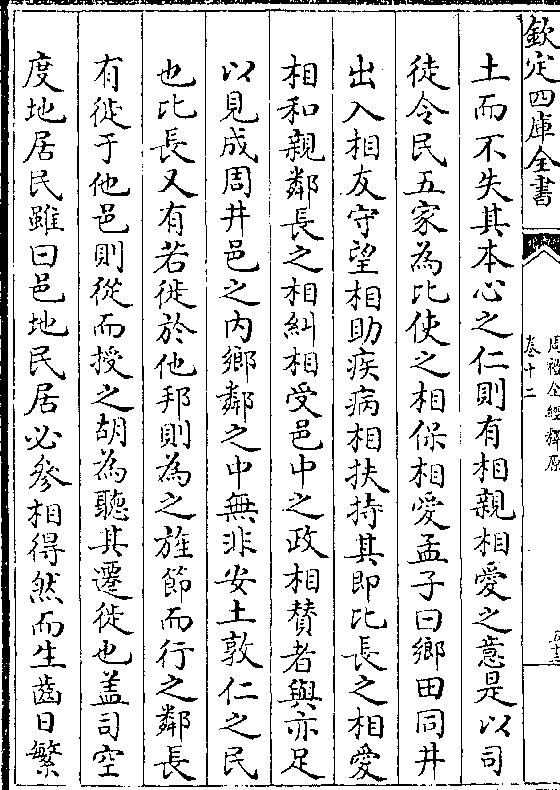 欽定四庫全書
周禮全經釋原
卷十二
土而不失其本心之仁則有相親相愛之意是以司
徒令民五家為比使之相保相愛孟子曰鄉田同井
出入相友守望相助疾病相扶持其即比長之相愛
相和親鄰長之相糾相受邑中之政相賛者與亦足
以見成周井邑之内鄉鄰之中無非安土敦仁之民
也比長又有若徙於他邦則為之旌節而行之鄰長
有徙于他邑則從而授之胡為聽其遷徙也盖司空
度地居民雖曰邑地民居必參相得然而生齒日繁